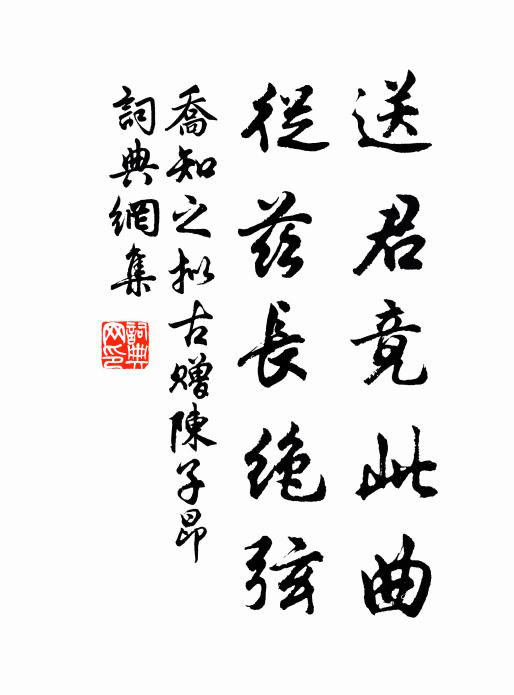 送君竟此曲
從茲長絕弦
喬知之擬古贈陳子昂
詞典網集
詞典網印